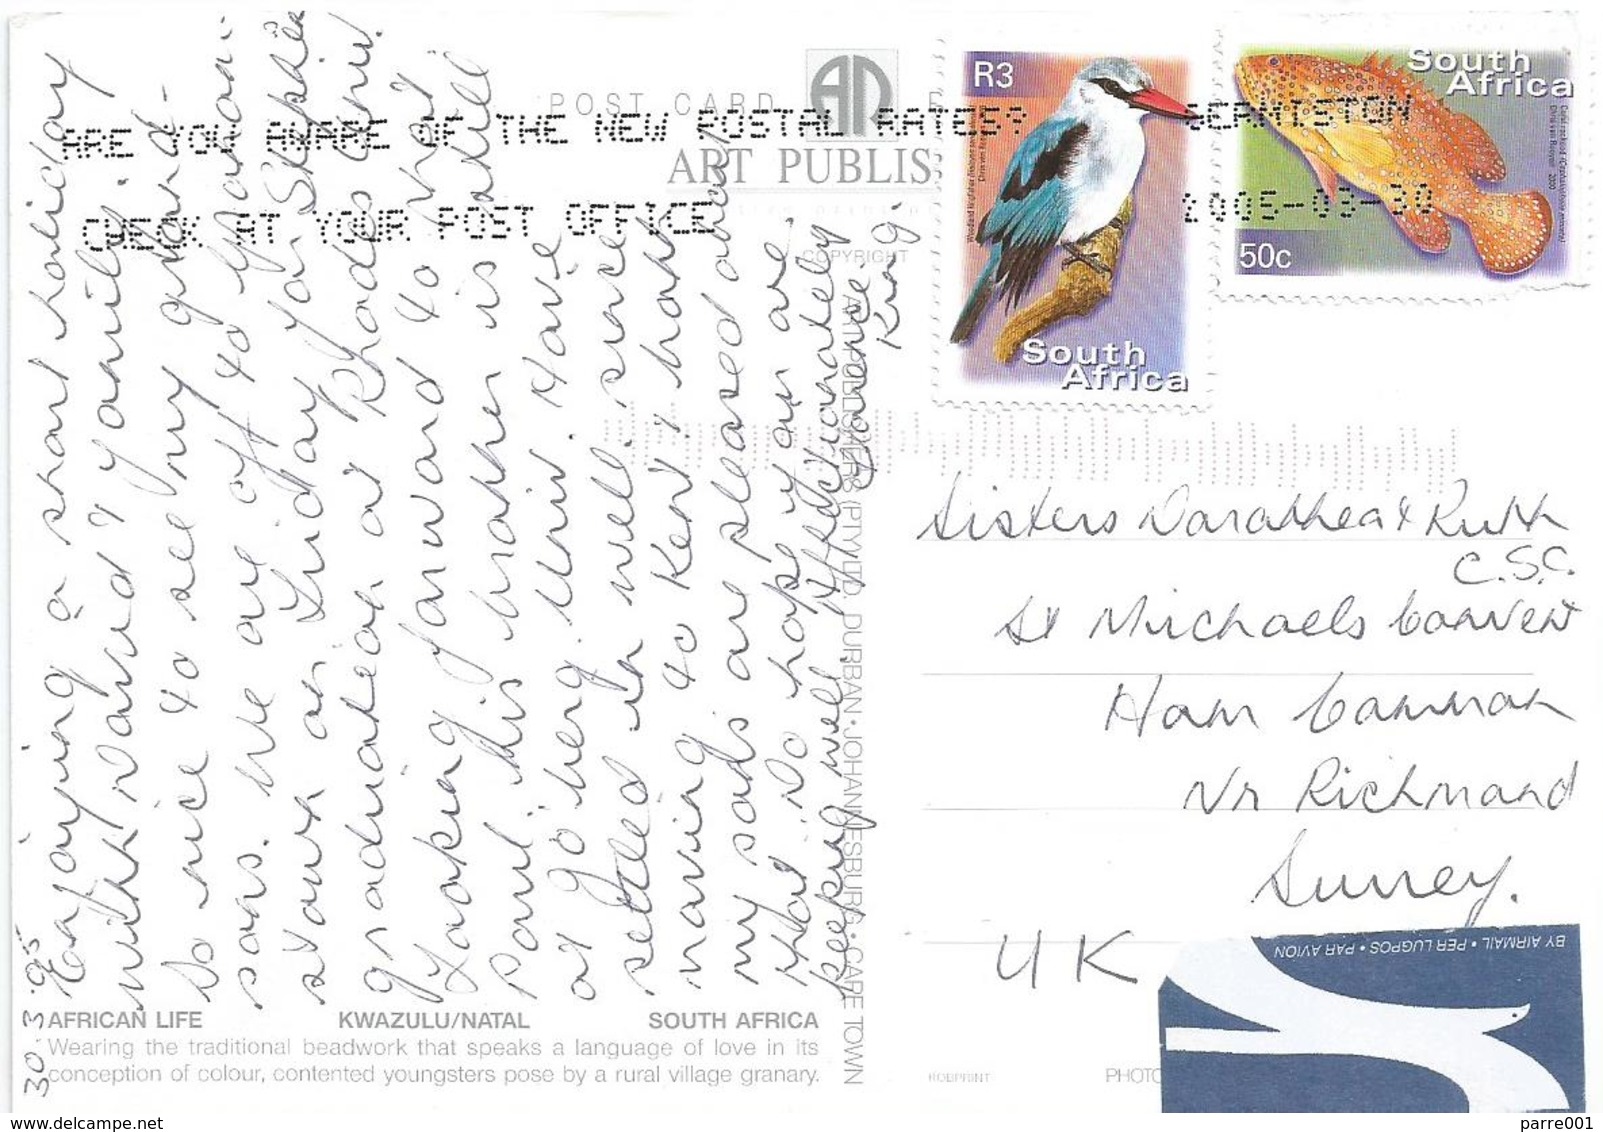 30.3.05
Enjoying a short holiday
with David & family.
So nice to see my grand-
sons. We are off to Grahams-
town on Friday for Stephen
graduation at Rhodes Univ.
Looking forward to that
Paul, his brother is still
at Go'berg Univ. Have
settled in well since
moving to Kent. I hope
my sods are pleased about
that. Do hope you are
keeping well. Affectionately
Florence
King.
POST CARD
ART PUBLIS
COPYRIGHT
ART PUBLISHERS (PTY) LTD. DURBAN • JOHANNESBURG • CAPE TOWN
ARE YOU AWARE OF THE NEW POSTAL RATES?
CHECK AT YOUR POST OFFICE
GERMISTON
2005-03-30
R3
South
Africa
South
Africa
50c
Sisters Dorothea & Ruth
C.S.C.
St Michaels Convent
Ham Common
Nr Richmond
Surrey.
UK
BY AIRMAIL • PER LUGPOS • PAR AVION
AFRICAN LIFE KWAZULU/NATAL SOUTH AFRICA
Wearing the traditional beadwork that speaks a language of love in its
conception of colour, contented youngsters pose by a rural village granary.
ROBPRINT
PHOTO
parre001